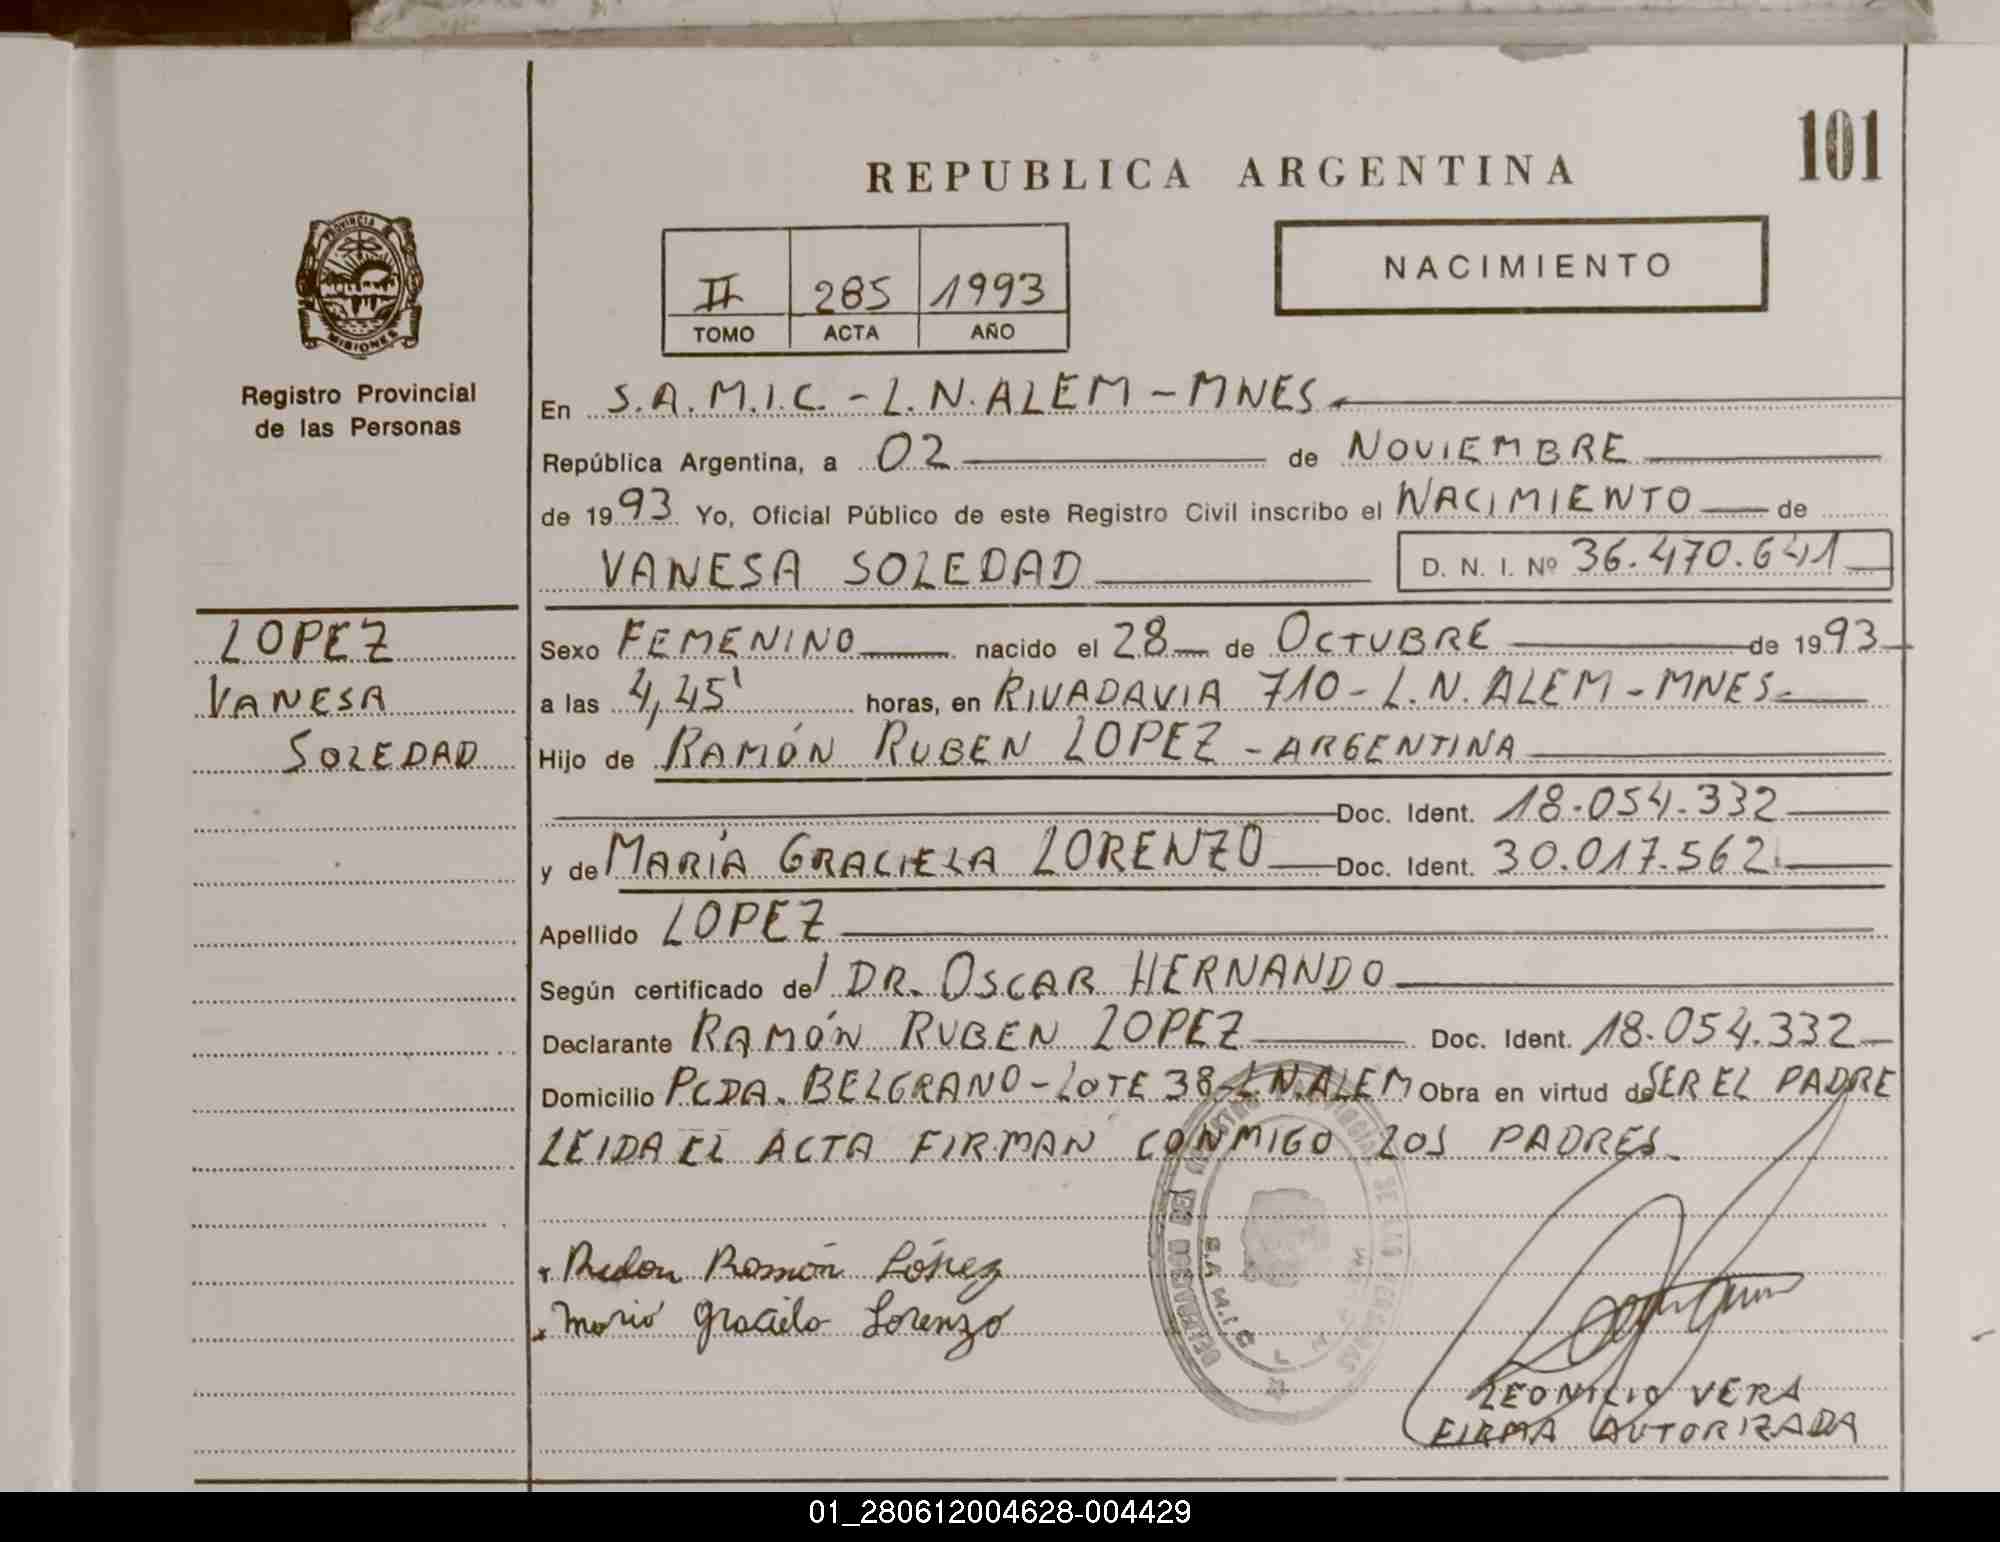 101
REPUBLICA ARGENTINA
PROVINCIA DE MISIONES
Registro Provincial
de las Personas
II 285 1993
TOMO ACTA AÑO
NACIMIENTO
En S.A.M.I.C. - L.N. ALEM - MNES.
República Argentina, a 02 de NOVIEMBRE
de 1993 Yo, Oficial Público de este Registro Civil inscribo el NACIMIENTO de
VANESA SOLEDAD D. N. I. Nº 36.470.641
LOPEZ
VANESA
SOLEDAD
Sexo FEMENINO nacido el 28 de OCTUBRE de 1993
a las 4,45' horas, en RIVADAVIA 710 - L.N. ALEM - MNES.
Hijo de RAMÓN RUBEN LOPEZ - ARGENTINA
Doc. Ident. 18.054.332
y de MARÍA GRACIELA LORENZO Doc. Ident. 30.017.562
Apellido LOPEZ
Según certificado del DR. OSCAR HERNANDO
Declarante RAMÓN RUBEN LOPEZ Doc. Ident. 18.054.332
Domicilio PCDA. BELGRANO - LOTE 38 - L.N. ALEM Obra en virtud de SER EL PADRE
LEIDA EL ACTA FIRMAN CONMIGO LOS PADRES.
Ramón López
María Graciela Lorenzo
S.A.M.I.C.
LEONILIO VERA
FIRMA AUTORIZADA
01_280612004628-004429